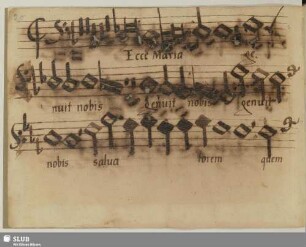 Ecce Maria ge
nuit nobis genuit nobis genuit
nobis salua torem quem
SLUB
Wir führen Wissen.